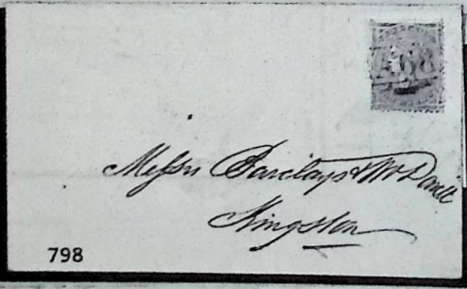 A68
Messrs Barclays & McDowell
Kingston
798